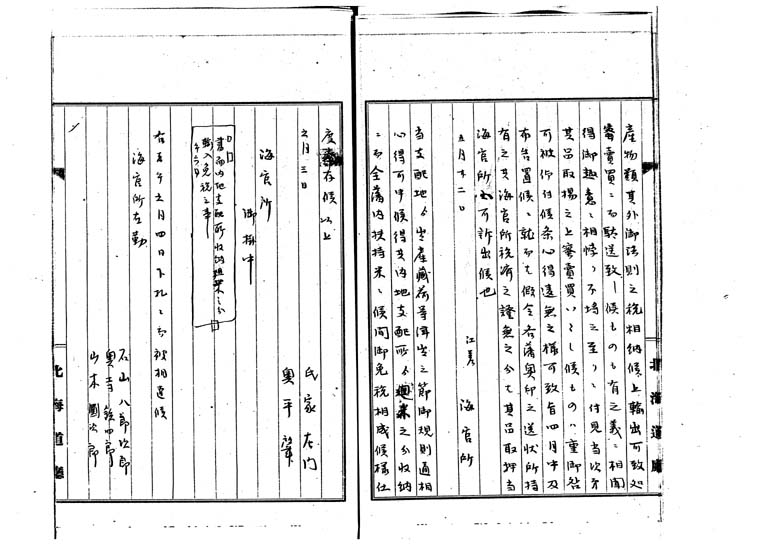 産物類其外御法則之税相納候上輸出可致処
審賣買ニ而転送致し候ものも有之義ニ相聞
得御趣意ニ相悖り不埒之至りニ付見当次第
其品取揚之上審賣買いたし候もの八重御咎
可被仰付候条心得違無之様可致旨四月中及
布告置候就而者假令各藩奥印之送状所持
有之共海官所税済之證無之分者其品取押当
海官所へ可訴出候也
五月十二日
江差 海官所
当支配地ゟ出産蔵荷等津出之節御規則通相
心得可申候得共内地支配所ゟ廻米之分収納
ニ而全藩内扶持米ニ候間御免税相成候様仕
度奉存候以上
五月三日
氏家左門
奥平肇
海官所
御掛中
書面内地支配所収納廻米之分
輸入免税之事
午六月
右五午五月四日下札ニ而被相達候
海官所在勤
石山八郎次郎
奥寺鉄四郎
山本國次郎
北海道廳
北海道廳